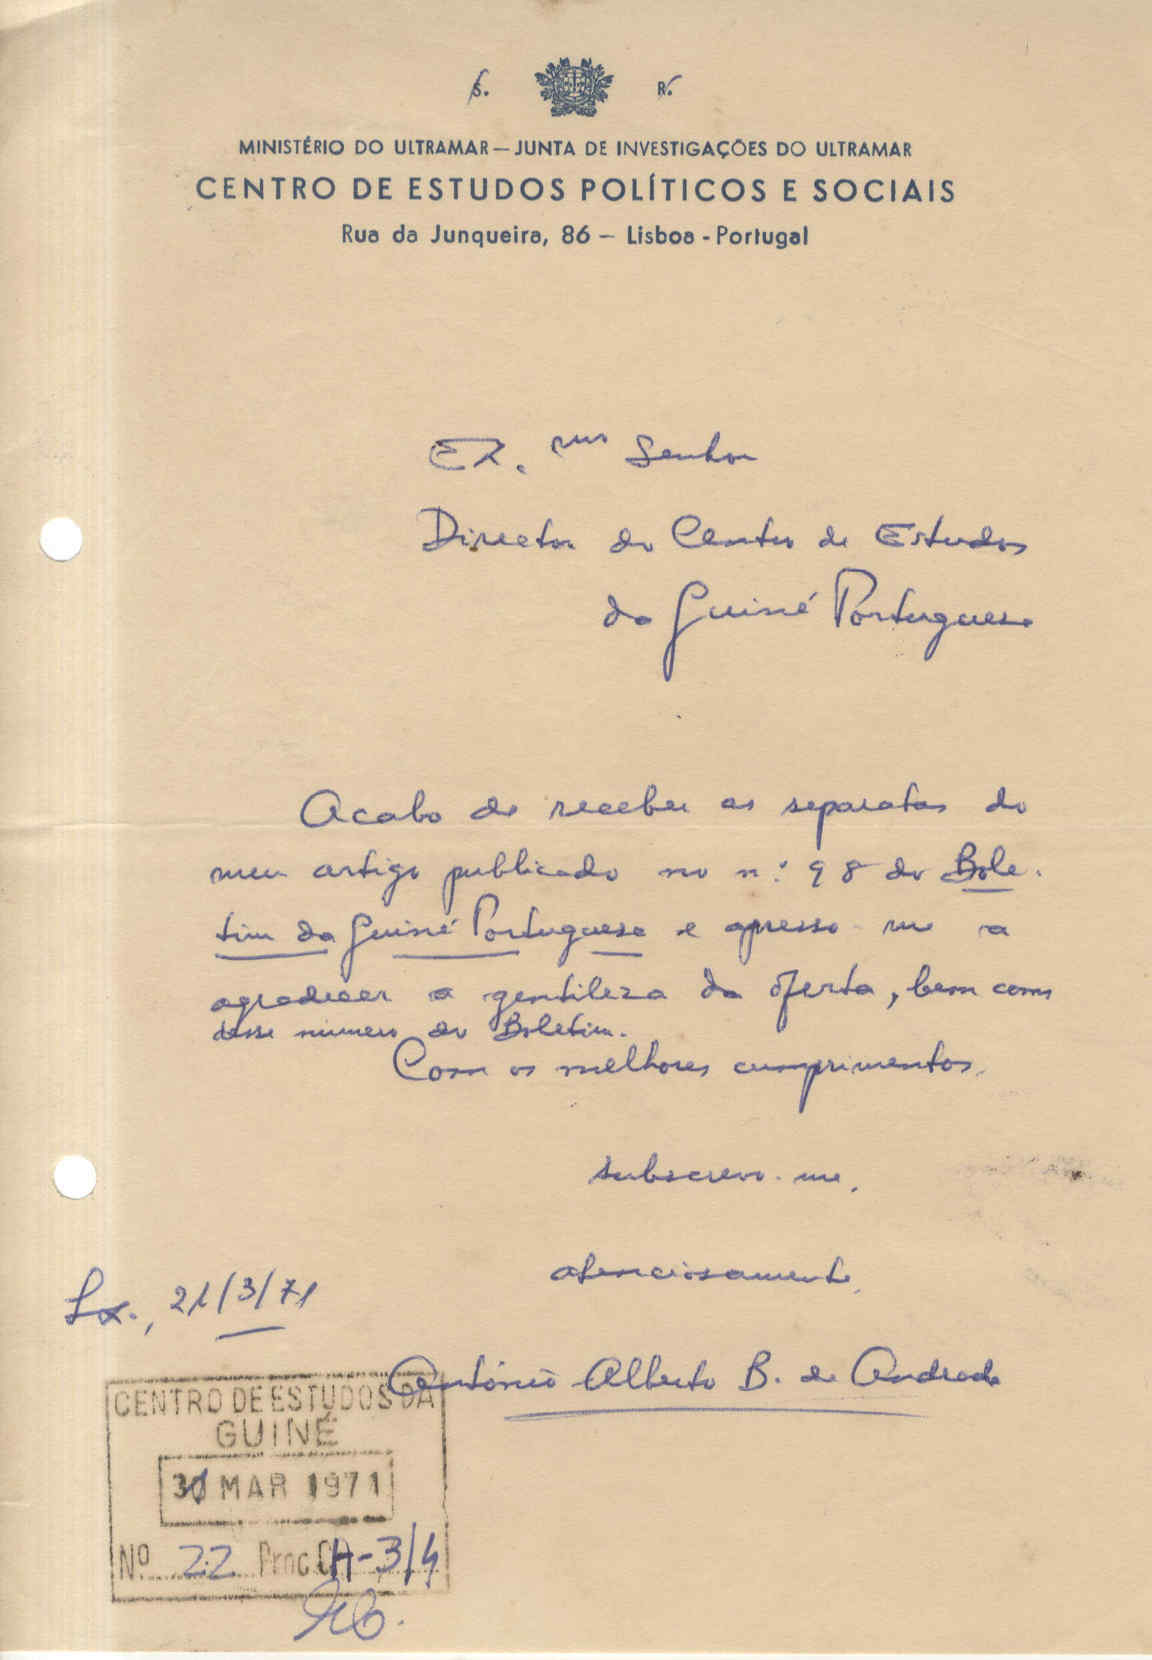 S. R.
MINISTÉRIO DO ULTRAMAR — JUNTA DE INVESTIGAÇÕES DO ULTRAMAR
CENTRO DE ESTUDOS POLÍTICOS E SOCIAIS
Rua da Junqueira, 86 — Lisboa - Portugal
Ex.mo Senhor
Director do Centro de Estudos
da Guiné Portuguesa
Acabo de receber as separatas do
meu artigo publicado no n.º 98 do Bole-
tim da Guiné Portuguesa e apresso-me a
agradecer a gentileza da oferta, bem como
desse número do Boletim.
Com os melhores cumprimentos,
subscrevo-me,
atenciosamente,
Lx., 21/3/71
António Alberto B. de Andrade
CENTRO DE ESTUDOS DA
GUINÉ
MAR 1971
Nº 22 Proc. H-3/4